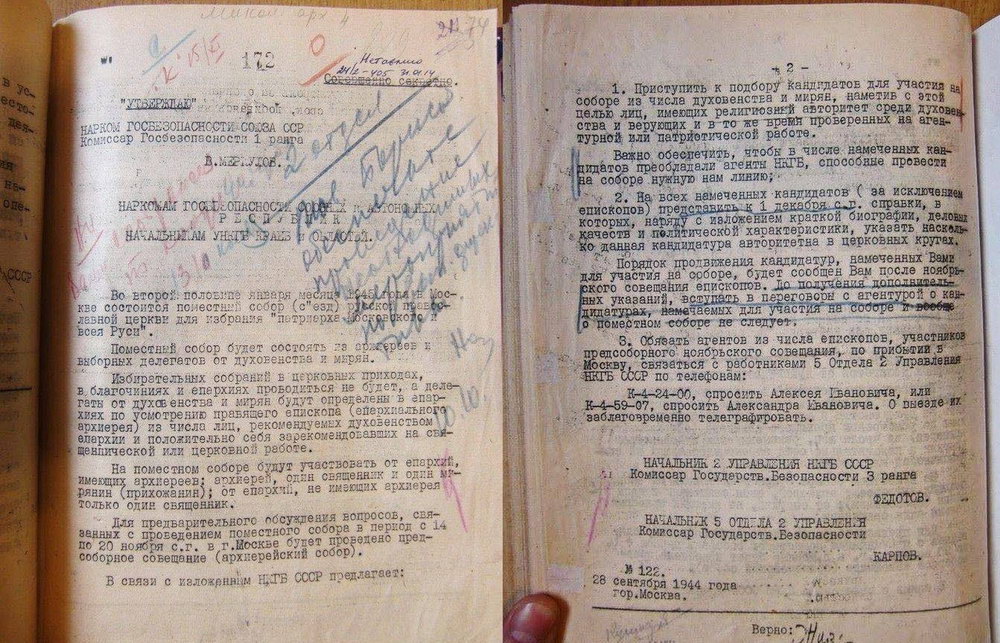 172
24/2-405
Совершенно секретно.
"УТВЕРЖДАЮ"
НАРКОМ ГОСБЕЗОПАСНОСТИ СОЮЗА ССР
Комиссар Госбезопасности 1 ранга
В.МЕРКУЛОВ.
НАРКОМАМ ГОСБЕЗОПАСНОСТИ
НАЧАЛЬНИКАМ УНКГБ КРАЕВ и ОБЛАСТЕЙ.
2 отдел
Во второй половине января месяца в Мос-
кве состоится поместный собор (с"езд) русской правос-
лавной церкви для избрания "патриарха Московского
всея Руси".
Поместный собор будет состоять из архиереев и
выборных делегатов от духовенства и мирян.
Избирательных собраний в церковных приходах,
в благочиниях и епархиях проводиться не будет, а деле-
гаты от духовенства и мирян будут определены в епар-
хиях по усмотрению правящего епископа (епархиального
архиерея) из числа лиц, рекомендуемых духовенством
епархии и положительно себя зарекомендовавших на свя-
щеннической или церковной работе.
На поместном соборе будут участвовать от епархий,
имеющих архиереев: архиерей, один священник и один ми-
рянин (прихожанин); от епархий, не имеющих архиерея
только один священник.
Для предварительного обсуждения вопросов, свя-
занных с проведением поместного собора в период с 14
по 20 ноября с.г. в г.Москве будет проведено пред-
соборное совещание (архиерейский собор).
В связи с изложенным НКГБ СССР предлагает:
- 2 -
1. Приступить к подбору кандидатов для участия на
соборе из числа духовенства и мирян, наметив с этой
целью лиц, имеющих религиозный авторитет среди духовен-
ства и верующих и в то же время проверенных на аген-
турной или патриотической работе.
Важно обеспечить, чтобы в числе намеченных кан-
дидатов преобладали агенты НКГБ, способные провести
на соборе нужную нам линию;
2. На всех намеченных кандидатов ( за исключением
епископов) представить к 1 декабря с.г. справки, в
которых, наряду с изложением краткой биографии, деловых
качеств и политической характеристики, указать насколь-
ко данная кандидатура авторитетна в церковных кругах.
Порядок продвижения кандидатур, намеченных Вами
для участия на соборе, будет сообщен Вам после ноябрь-
ского совещания епископов. До получения дополнитель-
ных указаний, вступать в переговоры с агентурой о кан-
дидатурах, намечаемых для участия на соборе и вообще
о поместном соборе не следует.
3. Обязать агентов из числа епископов, участников
предсоборного ноябрьского совещания, по прибытии в
Москву, связаться с работниками 5 Отдела 2 Управления
НКГБ СССР по телефонам:
К-4-24-00, спросить Алексея Ивановича, или
К-4-59-07, спросить Александра Ивановича. О выезде их
заблаговременно телеграфировать.
НАЧАЛЬНИК 2 УПРАВЛЕНИЯ НКГБ СССР
Комиссар Государств.Безопасности 3 ранга
ФЕДОТОВ.
НАЧАЛЬНИК 5 ОТДЕЛА 2 УПРАВЛЕНИЯ
Комиссар Государств.Безопасности
КАРПОВ.
№ 122.
28 сентября 1944 года
гор.Москва.
Верно: